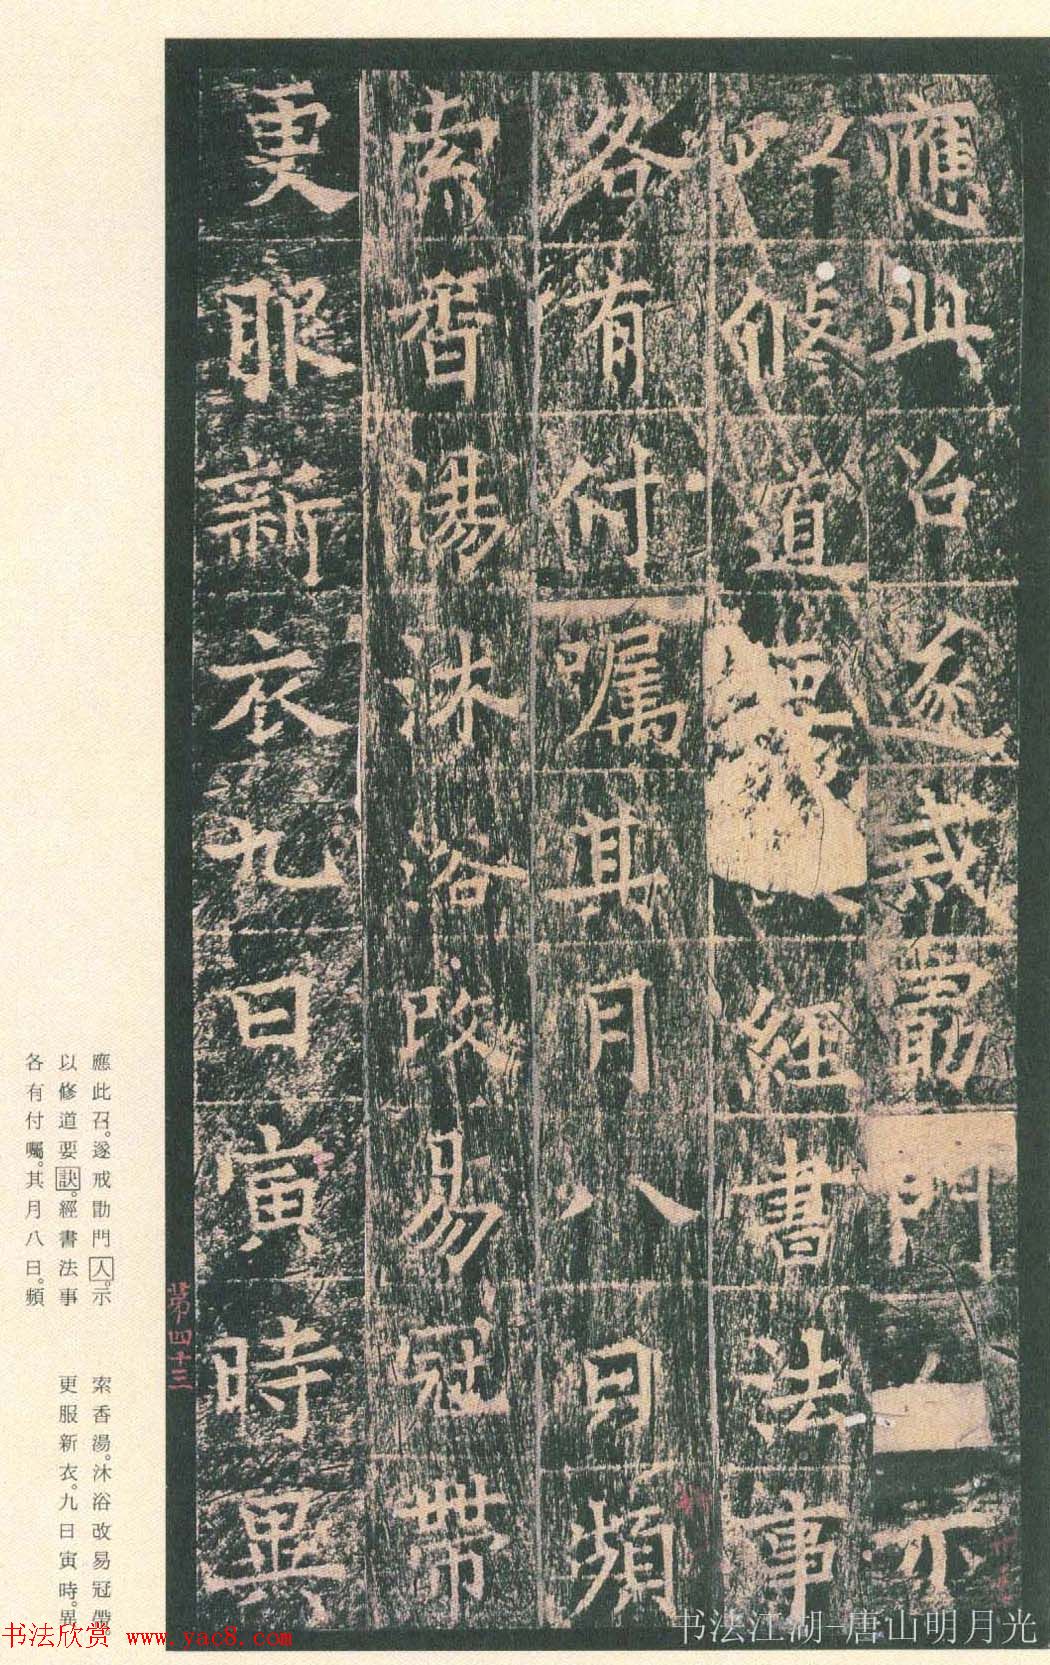 應此召遂戒勖門人示
以修道要經書法事
各有付囑其月八日頻
索香湯沐浴改易冠帶
更服新衣九日寅時異
第四十三
應此召。遂戒勖門人。示
以修道要訣。經書法事
各有付囑。其月八日。頻
索香湯。沐浴改易冠帶。
更服新衣。九日寅時。異
书法欣赏 www.yac8.com
书法江湖-唐山明月光